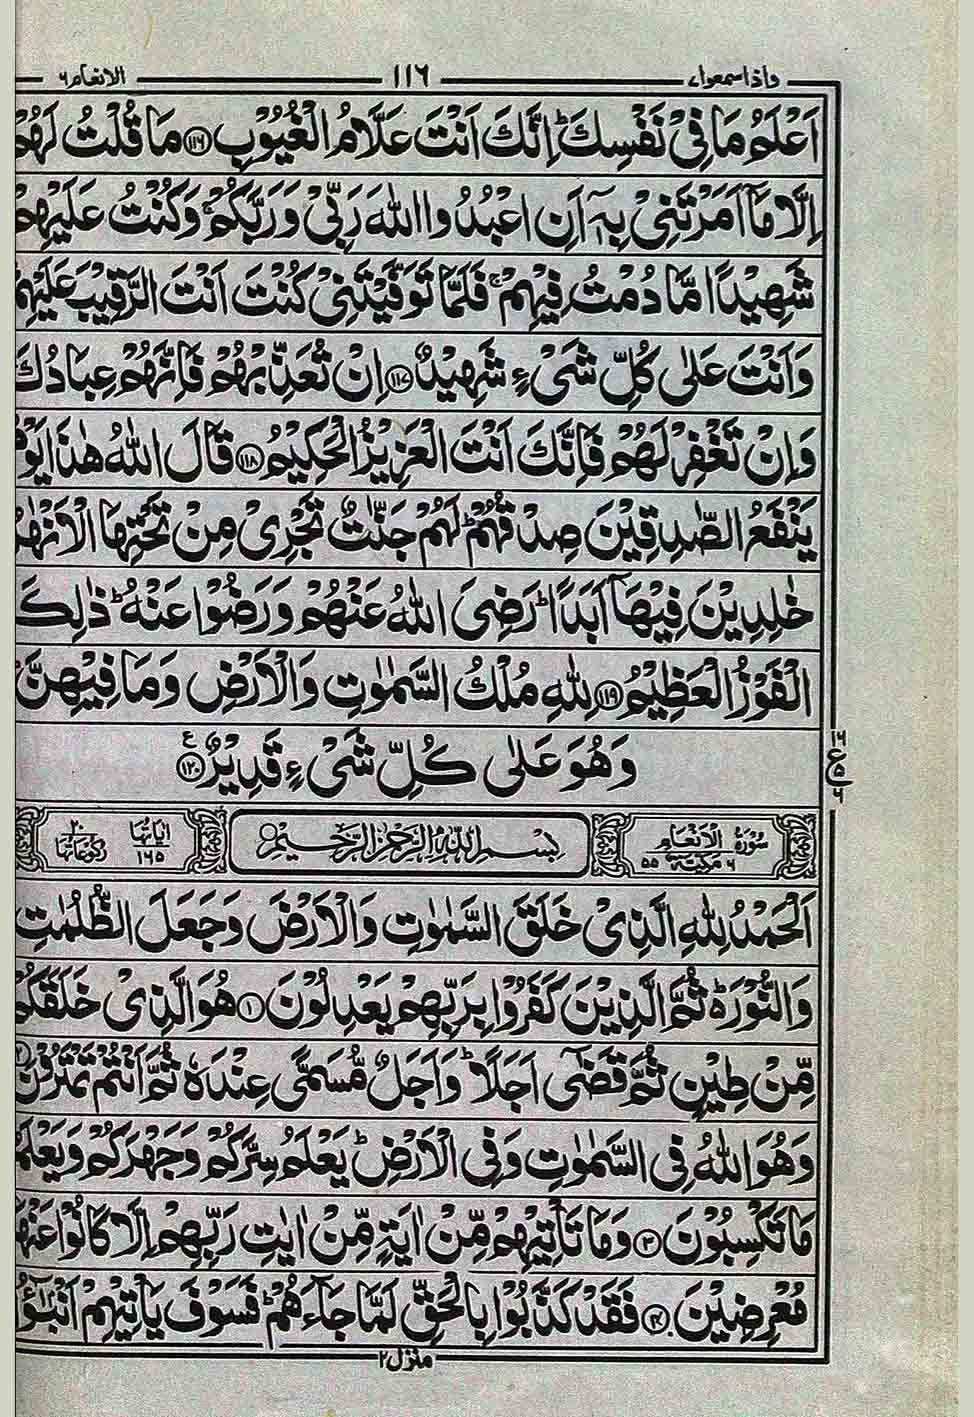 واذاسمعوا٧ ١١٦ الانعام٦
اَعْلَمُ مَا فِیْ نَفْسِكَ ؕ اِنَّكَ اَنْتَ عَلَّامُ الْغُیُوْبِ ﴿۱۱۶﴾ مَا قُلْتُ لَهُمْ
اِلَّا مَاۤ اَمَرْتَنِیْ بِهٖۤ اَنِ اعْبُدُوا اللّٰهَ رَبِّیْ وَ رَبَّكُمْ ۚ وَ كُنْتُ عَلَیْهِمْ
شَهِیْدًا مَّا دُمْتُ فِیْهِمْ ۚ فَلَمَّا تَوَفَّیْتَنِیْ كُنْتَ اَنْتَ الرَّقِیْبَ عَلَیْهِمْ
وَ اَنْتَ عَلٰی كُلِّ شَیْءٍ شَهِیْدٌ ﴿۱۱۷﴾ اِنْ تُعَذِّبْهُمْ فَاِنَّهُمْ عِبَادُكَ
وَ اِنْ تَغْفِرْ لَهُمْ فَاِنَّكَ اَنْتَ الْعَزِیْزُ الْحَكِیْمُ ﴿۱۱۸﴾ قَالَ اللّٰهُ هٰذَا یَوْمُ
یَنْفَعُ الصّٰدِقِیْنَ صِدْقُهُمْ ؕ لَهُمْ جَنّٰتٌ تَجْرِیْ مِنْ تَحْتِهَا الْاَنْهٰرُ
خٰلِدِیْنَ فِیْهَاۤ اَبَدًا ؕ رَضِیَ اللّٰهُ عَنْهُمْ وَ رَضُوْا عَنْهُ ؕ ذٰلِكَ
الْفَوْزُ الْعَظِیْمُ ﴿۱۱۹﴾ لِلّٰهِ مُلْكُ السَّمٰوٰتِ وَ الْاَرْضِ وَ مَا فِیْهِنَّ
وَ هُوَ عَلٰی كُلِّ شَیْءٍ قَدِیْرٌ ﴿۱۲۰﴾ ع
١٦
ع
٥
٦
سُوْرَةُ الْاَنْعَامِ ٦ مَكِّیَّةٌ ٥٥ بِسْمِ اللّٰهِ الرَّحْمٰنِ الرَّحِیْمِ اٰیَاتُهَا ١٦٥ رُكُوْعَاتُهَا ٢٠
اَلْحَمْدُ لِلّٰهِ الَّذِیْ خَلَقَ السَّمٰوٰتِ وَ الْاَرْضَ وَ جَعَلَ الظُّلُمٰتِ
وَ النُّوْرَ ؕ ثُمَّ الَّذِیْنَ كَفَرُوْا بِرَبِّهِمْ یَعْدِلُوْنَ ﴿۱﴾ هُوَ الَّذِیْ خَلَقَكُمْ
مِّنْ طِیْنٍ ثُمَّ قَضٰۤی اَجَلًا ؕ وَ اَجَلٌ مُّسَمًّی عِنْدَهٗ ثُمَّ اَنْتُمْ تَمْتَرُوْنَ ﴿۲﴾
وَ هُوَ اللّٰهُ فِی السَّمٰوٰتِ وَ فِی الْاَرْضِ ؕ یَعْلَمُ سِرَّكُمْ وَ جَهْرَكُمْ وَ یَعْلَمُ
مَا تَكْسِبُوْنَ ﴿۳﴾ وَ مَا تَاْتِیْهِمْ مِّنْ اٰیَةٍ مِّنْ اٰیٰتِ رَبِّهِمْ اِلَّا كَانُوْا عَنْهَا
مُعْرِضِیْنَ ﴿۴﴾ فَقَدْ كَذَّبُوْا بِالْحَقِّ لَمَّا جَآءَهُمْ ؕ فَسَوْفَ یَاْتِیْهِمْ اَنْۢبٰٓؤُا
منزل٢